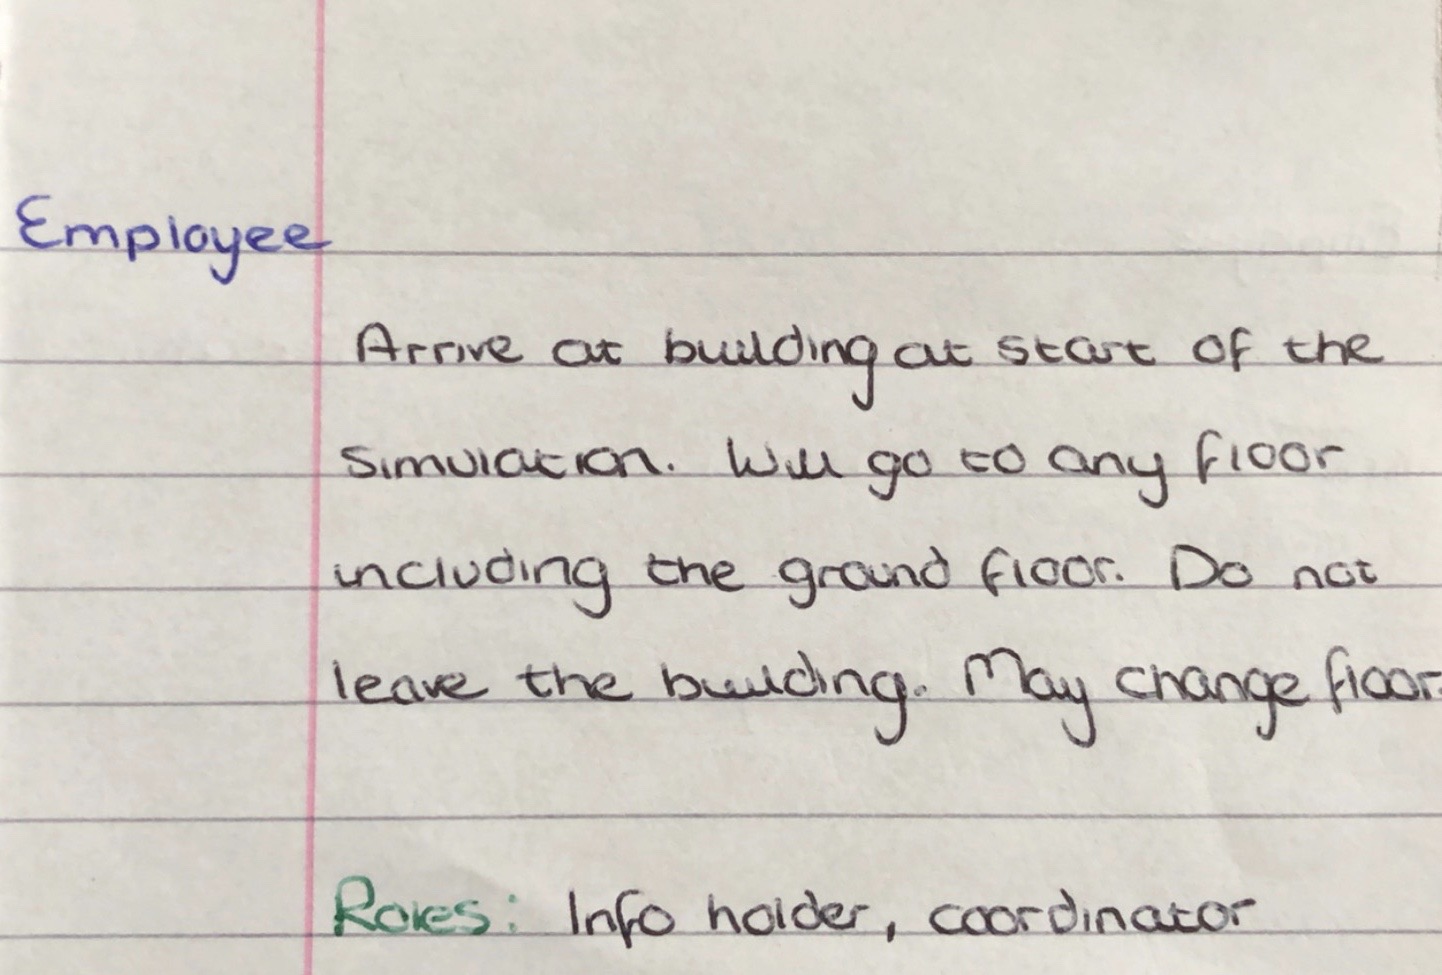 Employee
Arrive at building at start of the
simulation. Will go to any floor
including the ground floor. Do not
leave the building. May change floor.
Roles: Info holder, coordinator